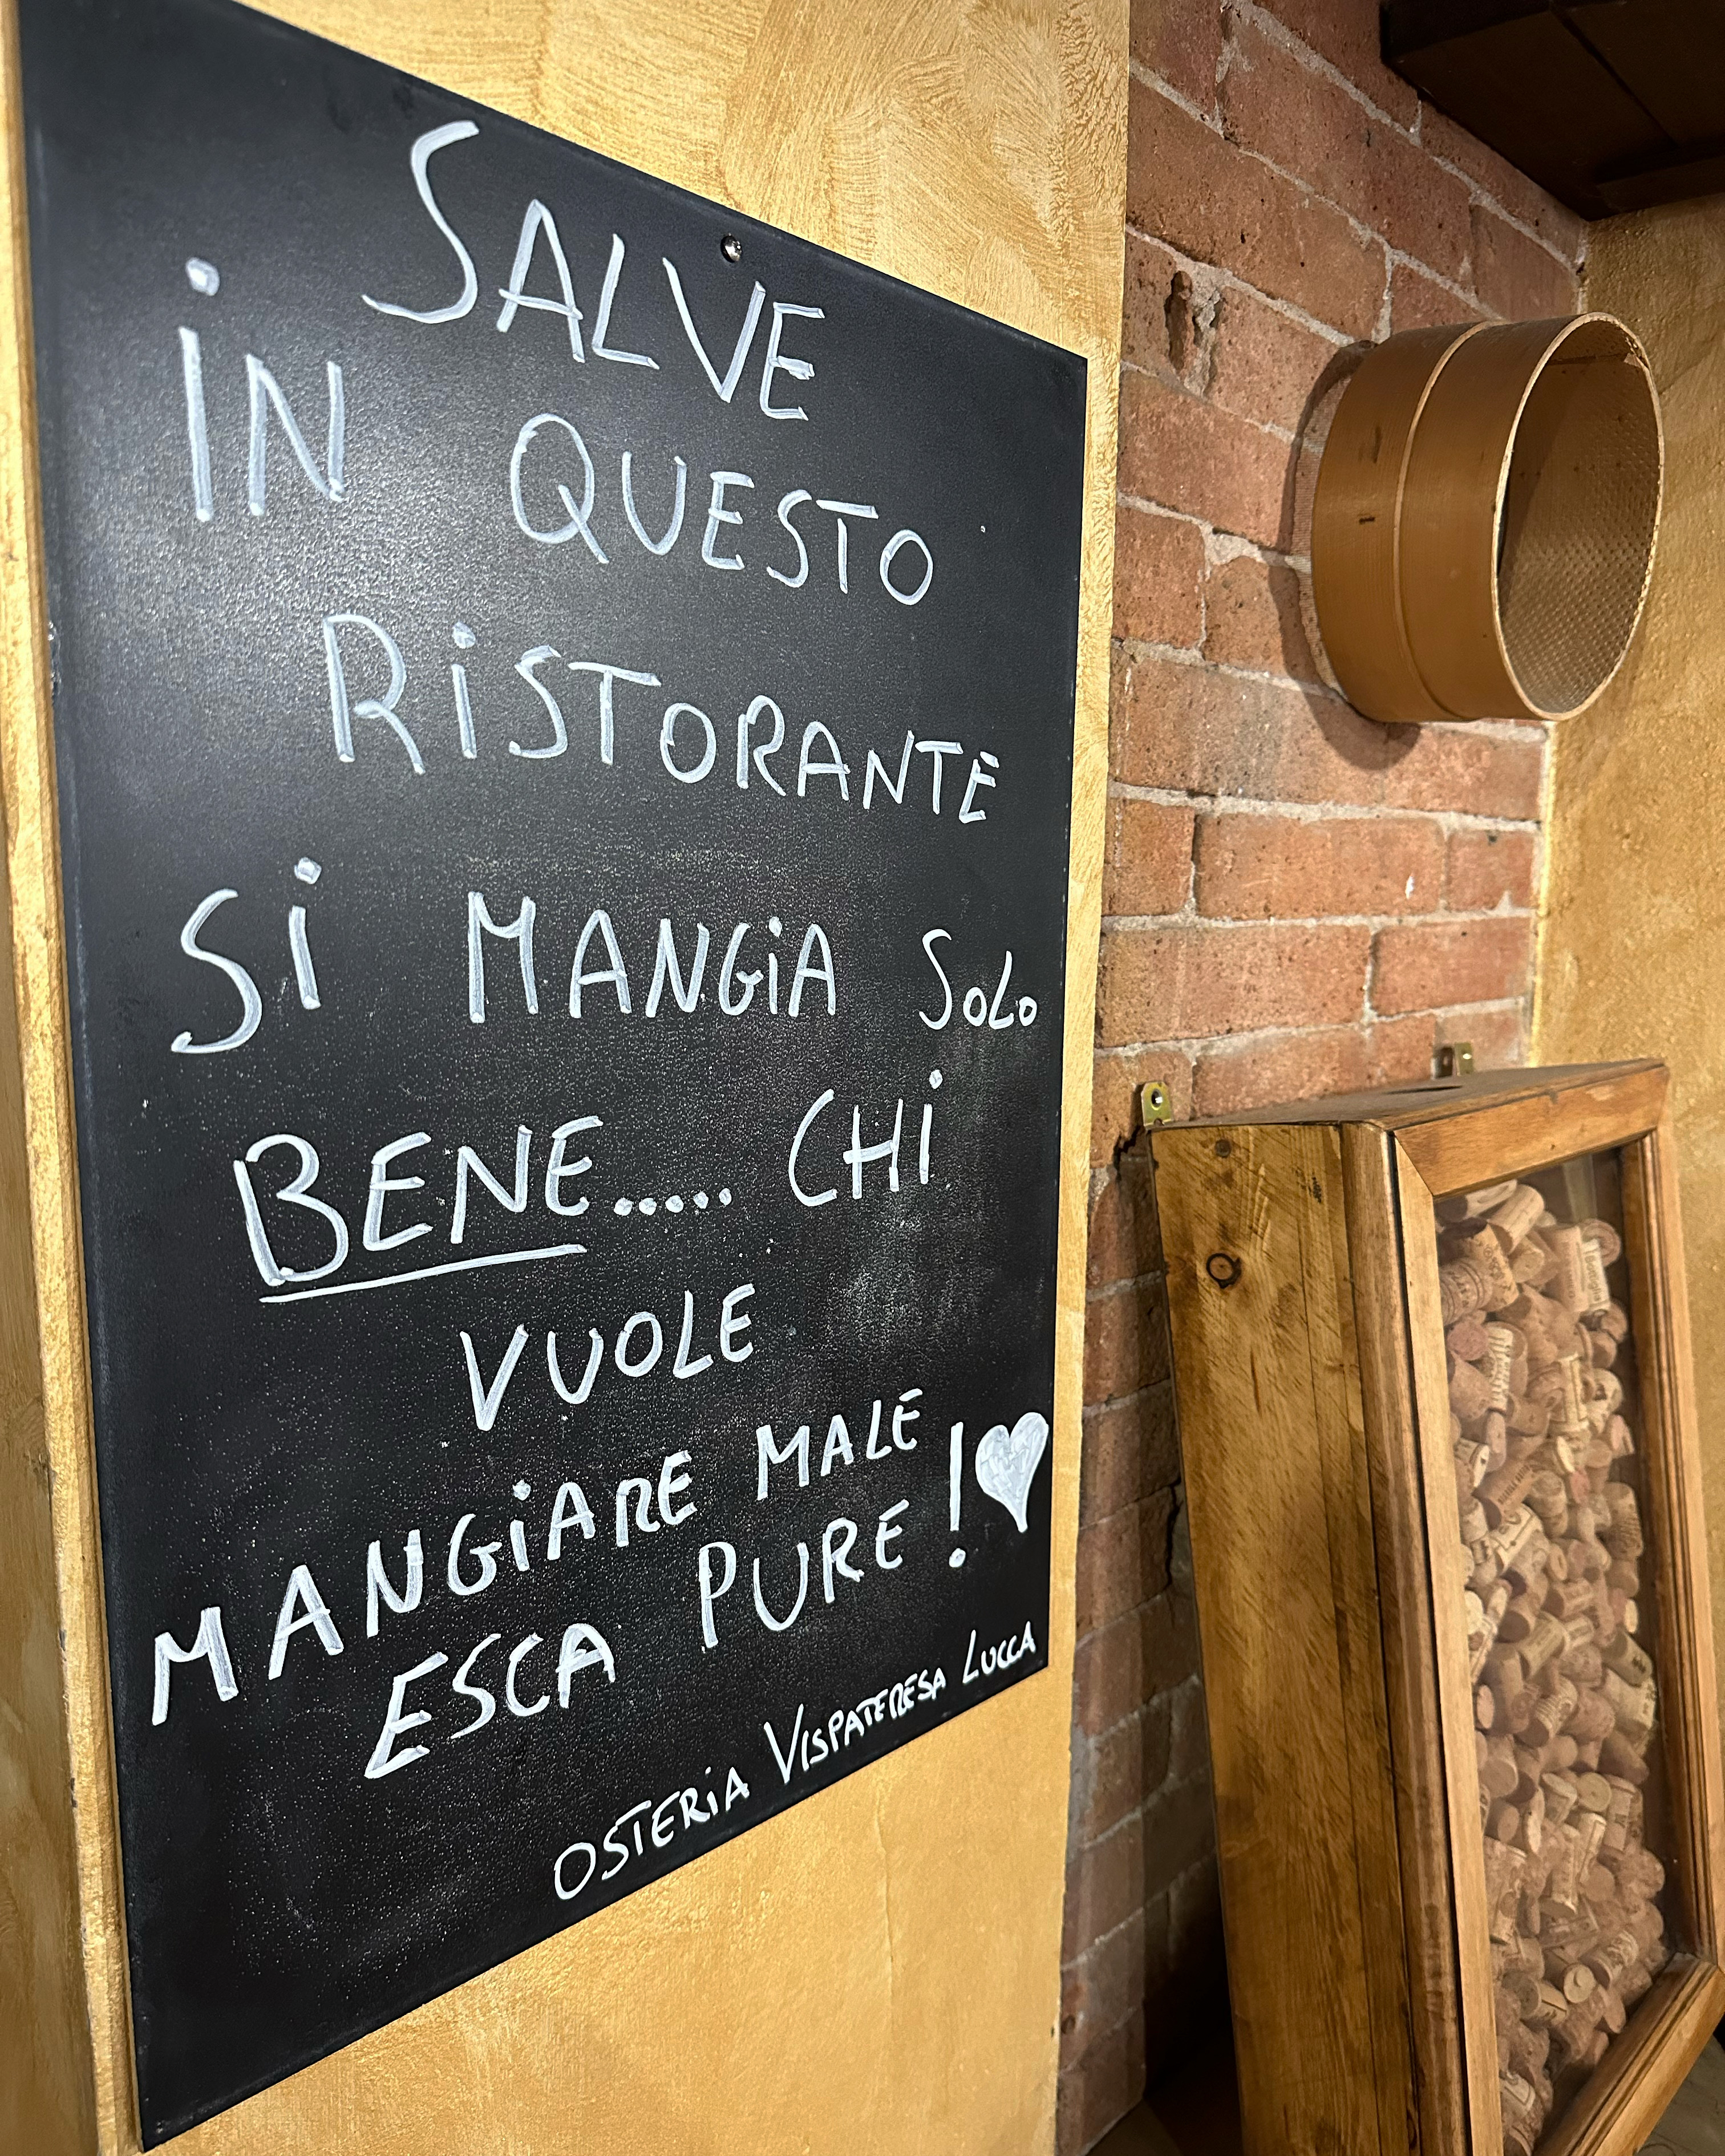 SALVE
IN QUESTO
RISTORANTE
SI MANGIA SOLO
BENE..... CHI
VUOLE
MANGIARE MALE
ESCA PURE!♥
OSTERIA VISPATERESA LUCCA